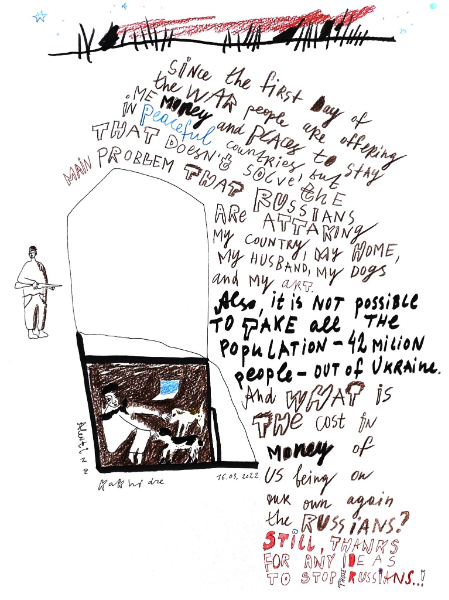 SiNCE the first DAY of
the WAR people are offering
ME MONEY and PLACES to STAY
iN Peaceful countries, but
THAT DOESN'T SOLVE the
MAIN PROBLEM THAT RUSSIANS
ARE ATTAKING
MY COUNTRY, MY HOME,
MY HUSBAND, MY DOGS
and MY ART.
Also, it is NOT possible
TO TAKE all THE
POPULATION – 42 MILION
people – OUT OF UKRAINE.
And WHAT is
THE COST in
MONEY of
US being on
our own again
the RUSSIANS?
STiLL, THANKS
FOR ANY IDEAS
TO STOP THESE RUSSIANS...!
16.03.2022